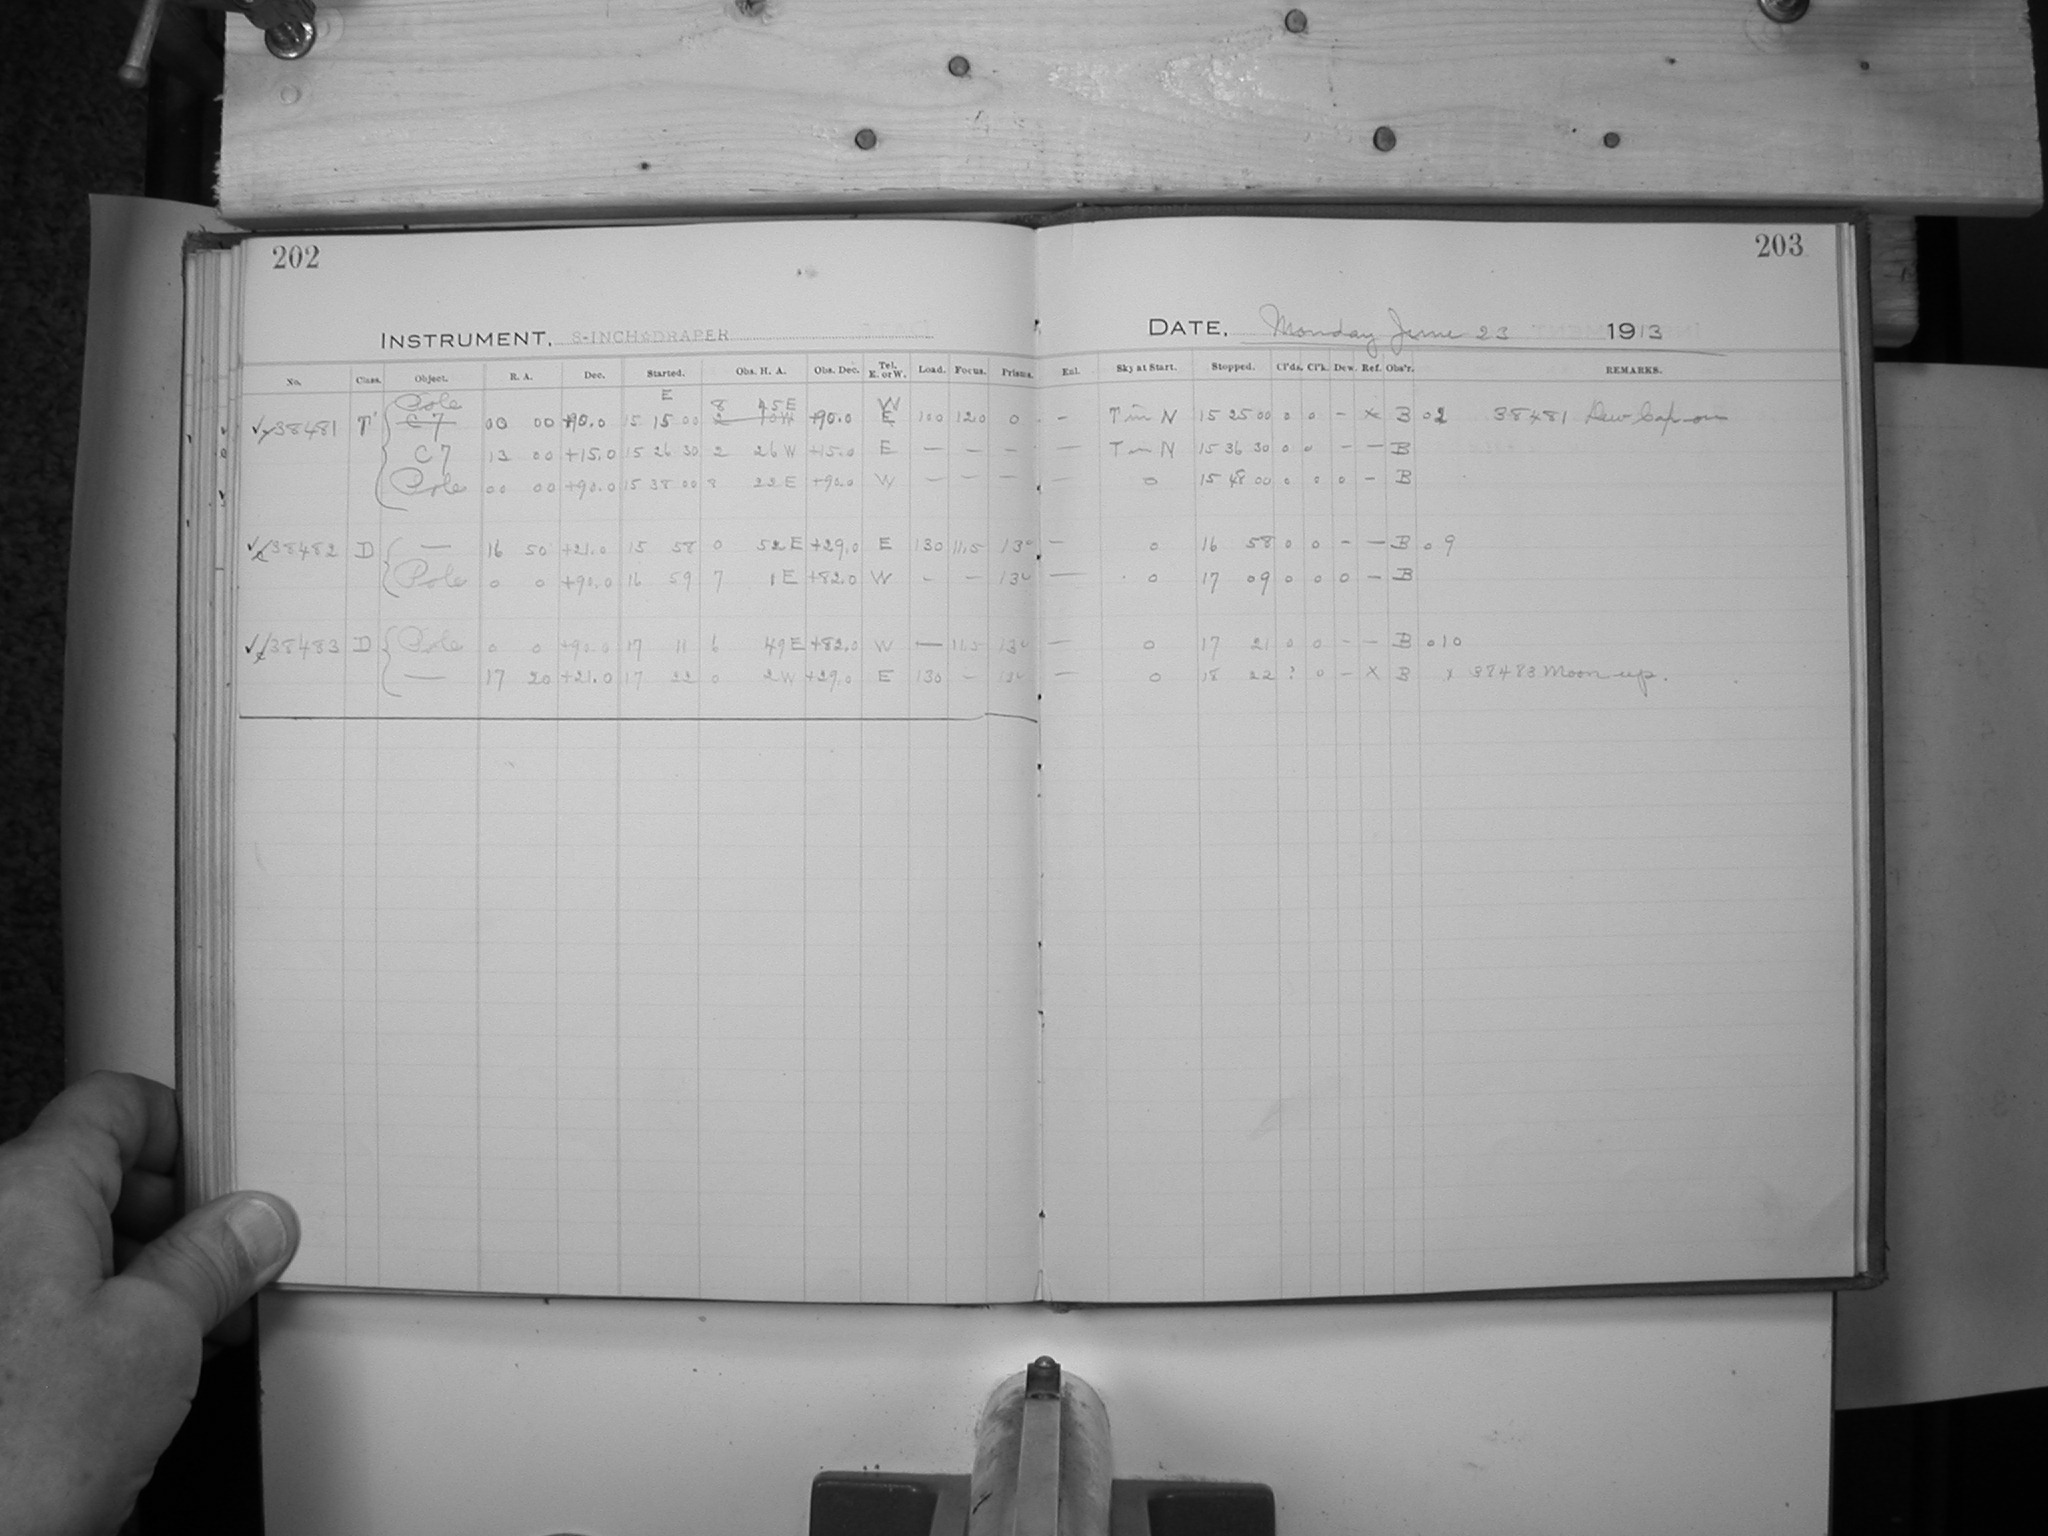 202
203
INSTRUMENT, 8-INCH DRAPER
DATE, Monday June 23 1913
No. Class. Object. R. A. Dec. Started. Obs. H. A. Obs. Dec. Tel. E. or W. Load. Focus. Prisms. Enl. Sky at Start. Stopped. Cl'ds. Cl'k. Dew. Ref. Obs'r. REMARKS.
E
Pole 8 45 E W
38481 T C7 00 00 +90.0 15 15 00 2 10 W +90.0 E 100 12.0 0 - T in N 15 25 00 0 0 - x B 02 38481 Dew Cap on
C7 13 00 +15.0 15 26 30 2 26 W +15.0 E — — — — T in N 15 36 30 0 0 - — B
Pole 00 00 +90.0 15 38 00 8 22 E +90.0 W — — — — 0 15 48 00 0 0 0 - B
38482 D — 16 50 +21.0 15 58 0 52 E +29.0 E 130 11.5 13° — 0 16 58 0 0 - — B 09
Pole 0 0 +90.0 16 59 7 1 E +82.0 W - — 13° — 0 17 09 0 0 0 - B
38483 D Pole 0 0 +90.0 17 11 6 49 E +82.0 W — 11.5 13° — 0 17 21 0 0 - - B 010
— 17 20 +21.0 17 22 0 2 W +29.0 E 130 — 13° — 0 18 22 ? 0 - x B x 38483 Moon up.